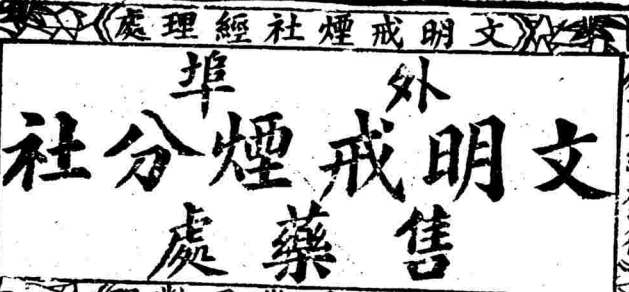 文明戒煙社經理處
外埠
文明戒煙分社
售藥處